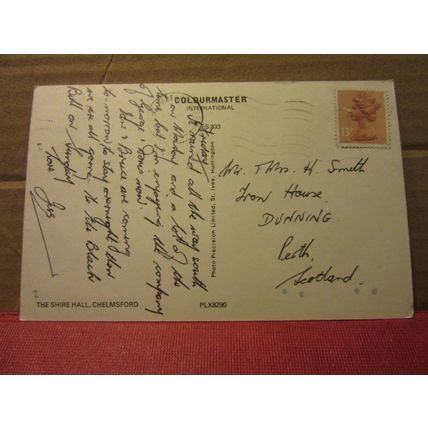 COLOURMASTER
INTERNATIONAL
Tuesday
It rained all the way south
on Monday and a lot of the
time but I'm enjoying the company
of George & Rowe now.
& Bruce are coming
to-morrow to stay overnight & then
we are all going to the Black
Bell on Thursday
Love
Jess
Mr. & Mrs. H. Smith
Iron House
DUNNING
Perth,
Scotland.
13P
Photo Precision Limited, St. Ives, Huntingdon
THE SHIRE HALL, CHELMSFORD
PLX8290